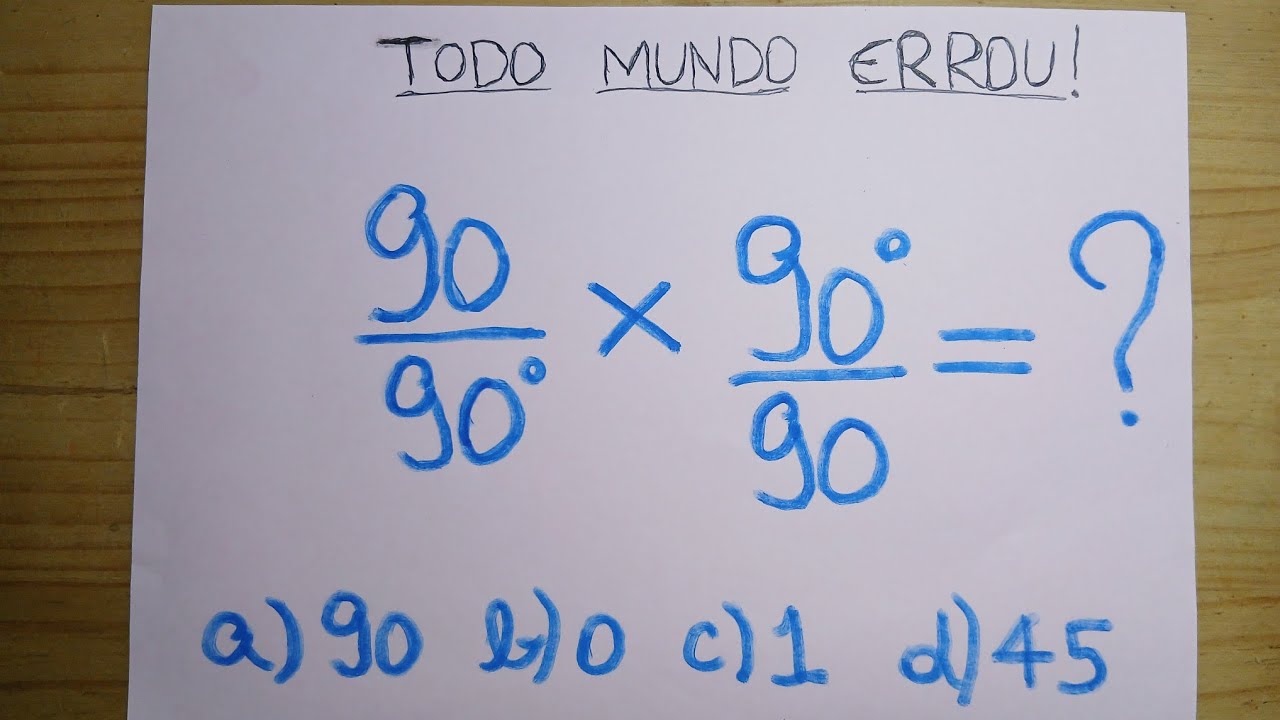 TODO MUNDO ERROU!
90/90° × 90°/90 = ?
a) 90 b) 0 c) 1 d) 45